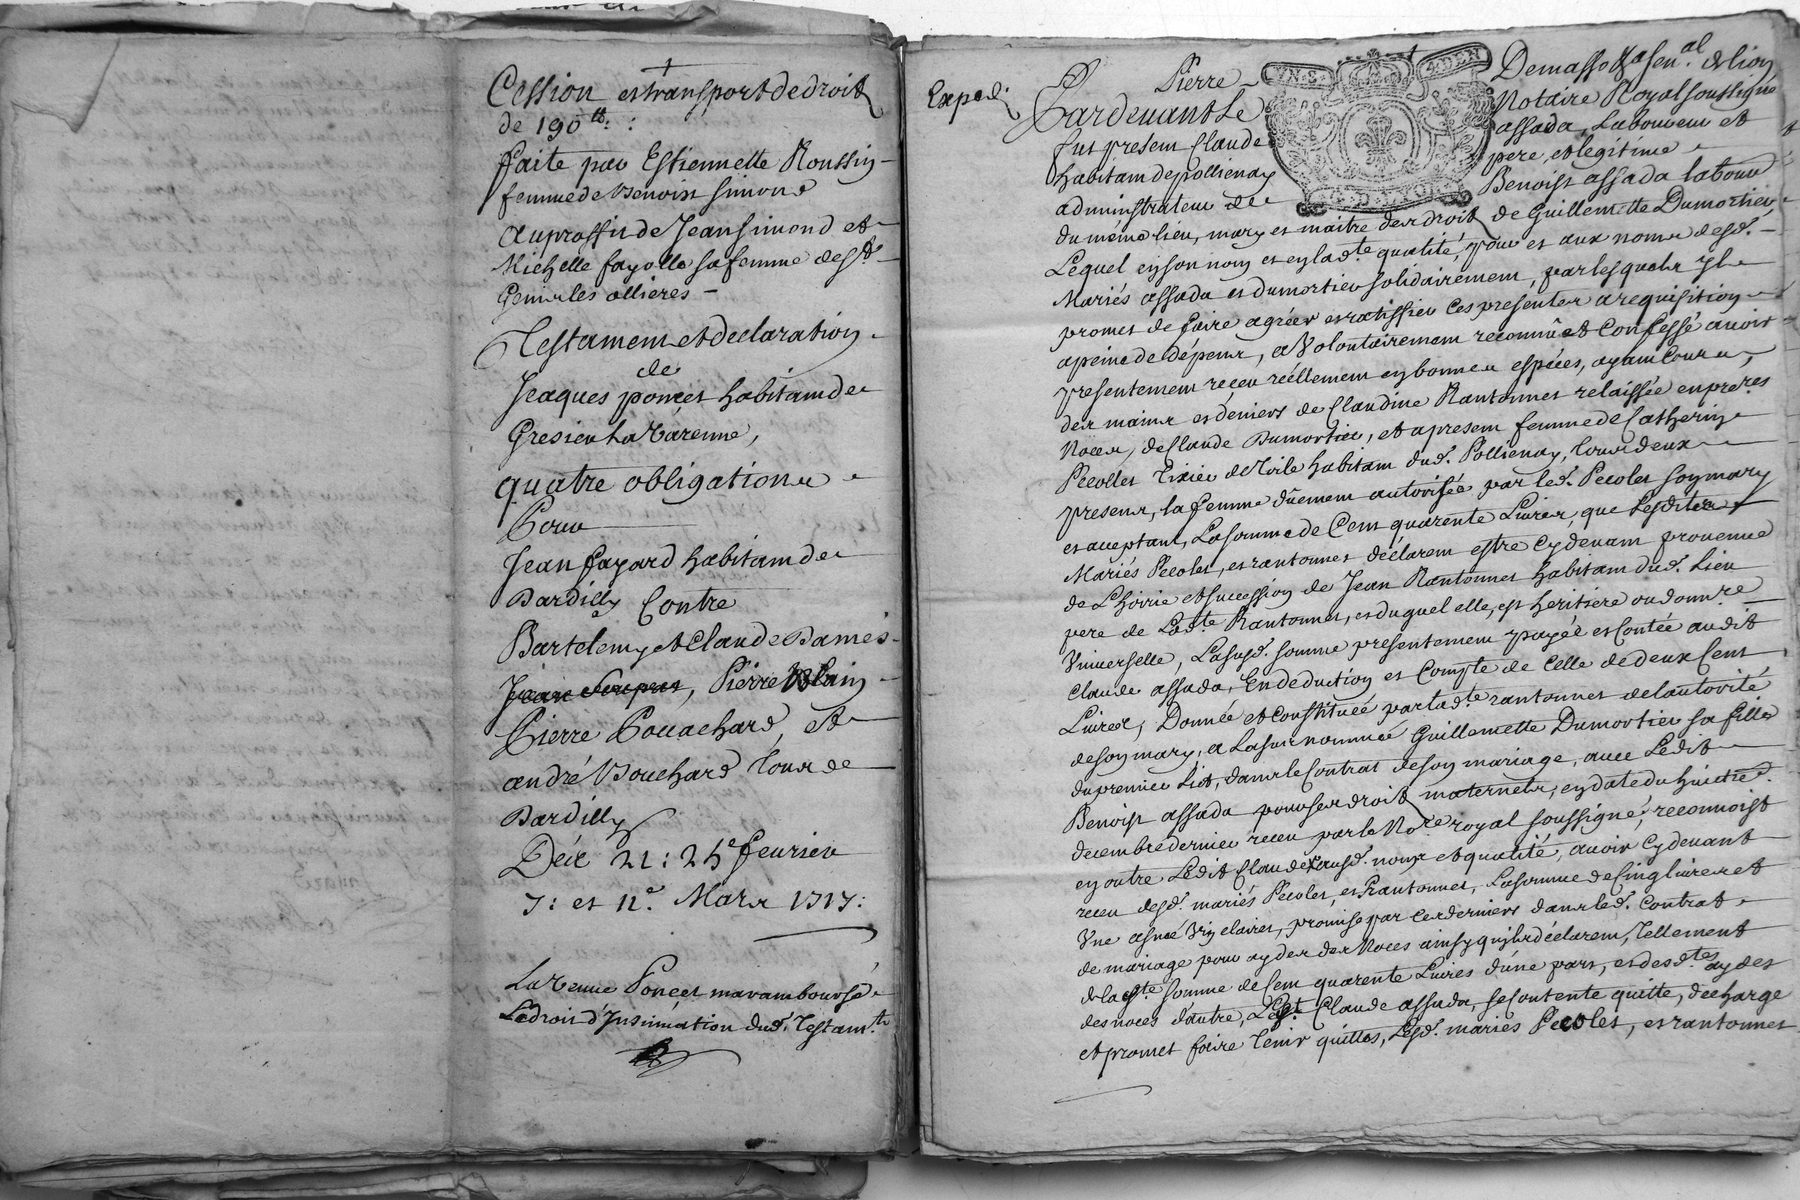 Cession et transport de droit
de 190 tt. :
faite par Estiennette Roussin
femme de Benoist Simond
Au proffit de Jean Simond et
Michelle fayolle sa femme de St
Genis les ollieres
Testament et declaration
de
Jeaques poncet habitant de
Gresieu La Varenne,
quatre obligations
Pour
Jean fayard habitant de
Dardilly Contre
Bartelemy et Claude Damés
Pierre Blain
Pierre Pouachard, et
andré Bouchard tous de
Dardilly
Des 21: 25e feurier
7: et 12e. Mars 1717:
La veuue Poncet ma rambourse
Le droit d'Insinuation dud. Testamt.
Exped.
Pierre Demasso en la sen.al de lion
Pardeuant Le Notaire Royal soussigné
fut present Claude assada, Laboureur et
habitant de pollienay pere et legitime
administrateur de Benoist assada labour
du méme lieu, mary et maitre des droits de Guillemette Dumortier
Lequel en son nom et en lad.te qualité, pour et aux noms desd.
Mariés assada et dumortier solidairement, par lesquels Il
promet de faire agréer et ratiffier ces presentes a requisition
a peine de dépens, a volontairement reconnû et Confessé auoir
presentement reçeu réellement en bonnes espéces, ayant Cours
des mains et déniers de Claudine Rantonnet relaissée en pre.res
Noces, de Claude Dumortier, et a present femme de Catherin
Pecollet Tixier de toile habitant dud. Pollienay, tous deux
presens, la femme dûement autorisée par led. Pecolet son mary
et acceptant, La somme de Cent quarente Liures, que Lesdites
Mariés Pecolet, et rantonnet déclarent estre cy deuant prouenue
de L'hoirie et succession de Jean Rantonnet habitant dud. Lieu
pere de Lad.te Rantonnet, et duquel elle, est heritiere ou donn.re
Vniuerselle, La susd. somme presentement payée et Contée audit
Claude assada, En deduction et Compte de Celle de deux Cent
Liures, Donnée et Constituée par lad.te rantonnet de l'autorité
de son mary, a La surnommée Guillemette Dumortier sa fille
du premier Lict, dans le Contrat de son mariage, auec Ledit
Benoist assada pour ses droits maternels, en date du huictie.
decembre dernier receu par le No.re royal soussigné, reconnoist
en outre Ledit Claude ausd. noms et qualité, auoir cy deuant
receu desd. mariés Pecolet, et Rantonnet, La somme de Cinq liures et
Vne asnée Vin clairet, promise par ces derniers dans led. Contrat
de mariage pour ayder des Noces ainsy qu'ils déclarent, Tellement
de lad.te somme de Cent quarente Liures d'une part, et desd.tes aydes
des noces d'autre, Led. Claude assada, se Contente quitte, décharge
et promet faire tenir quittes, Lesd. mariés Pecolet, et rantonnet